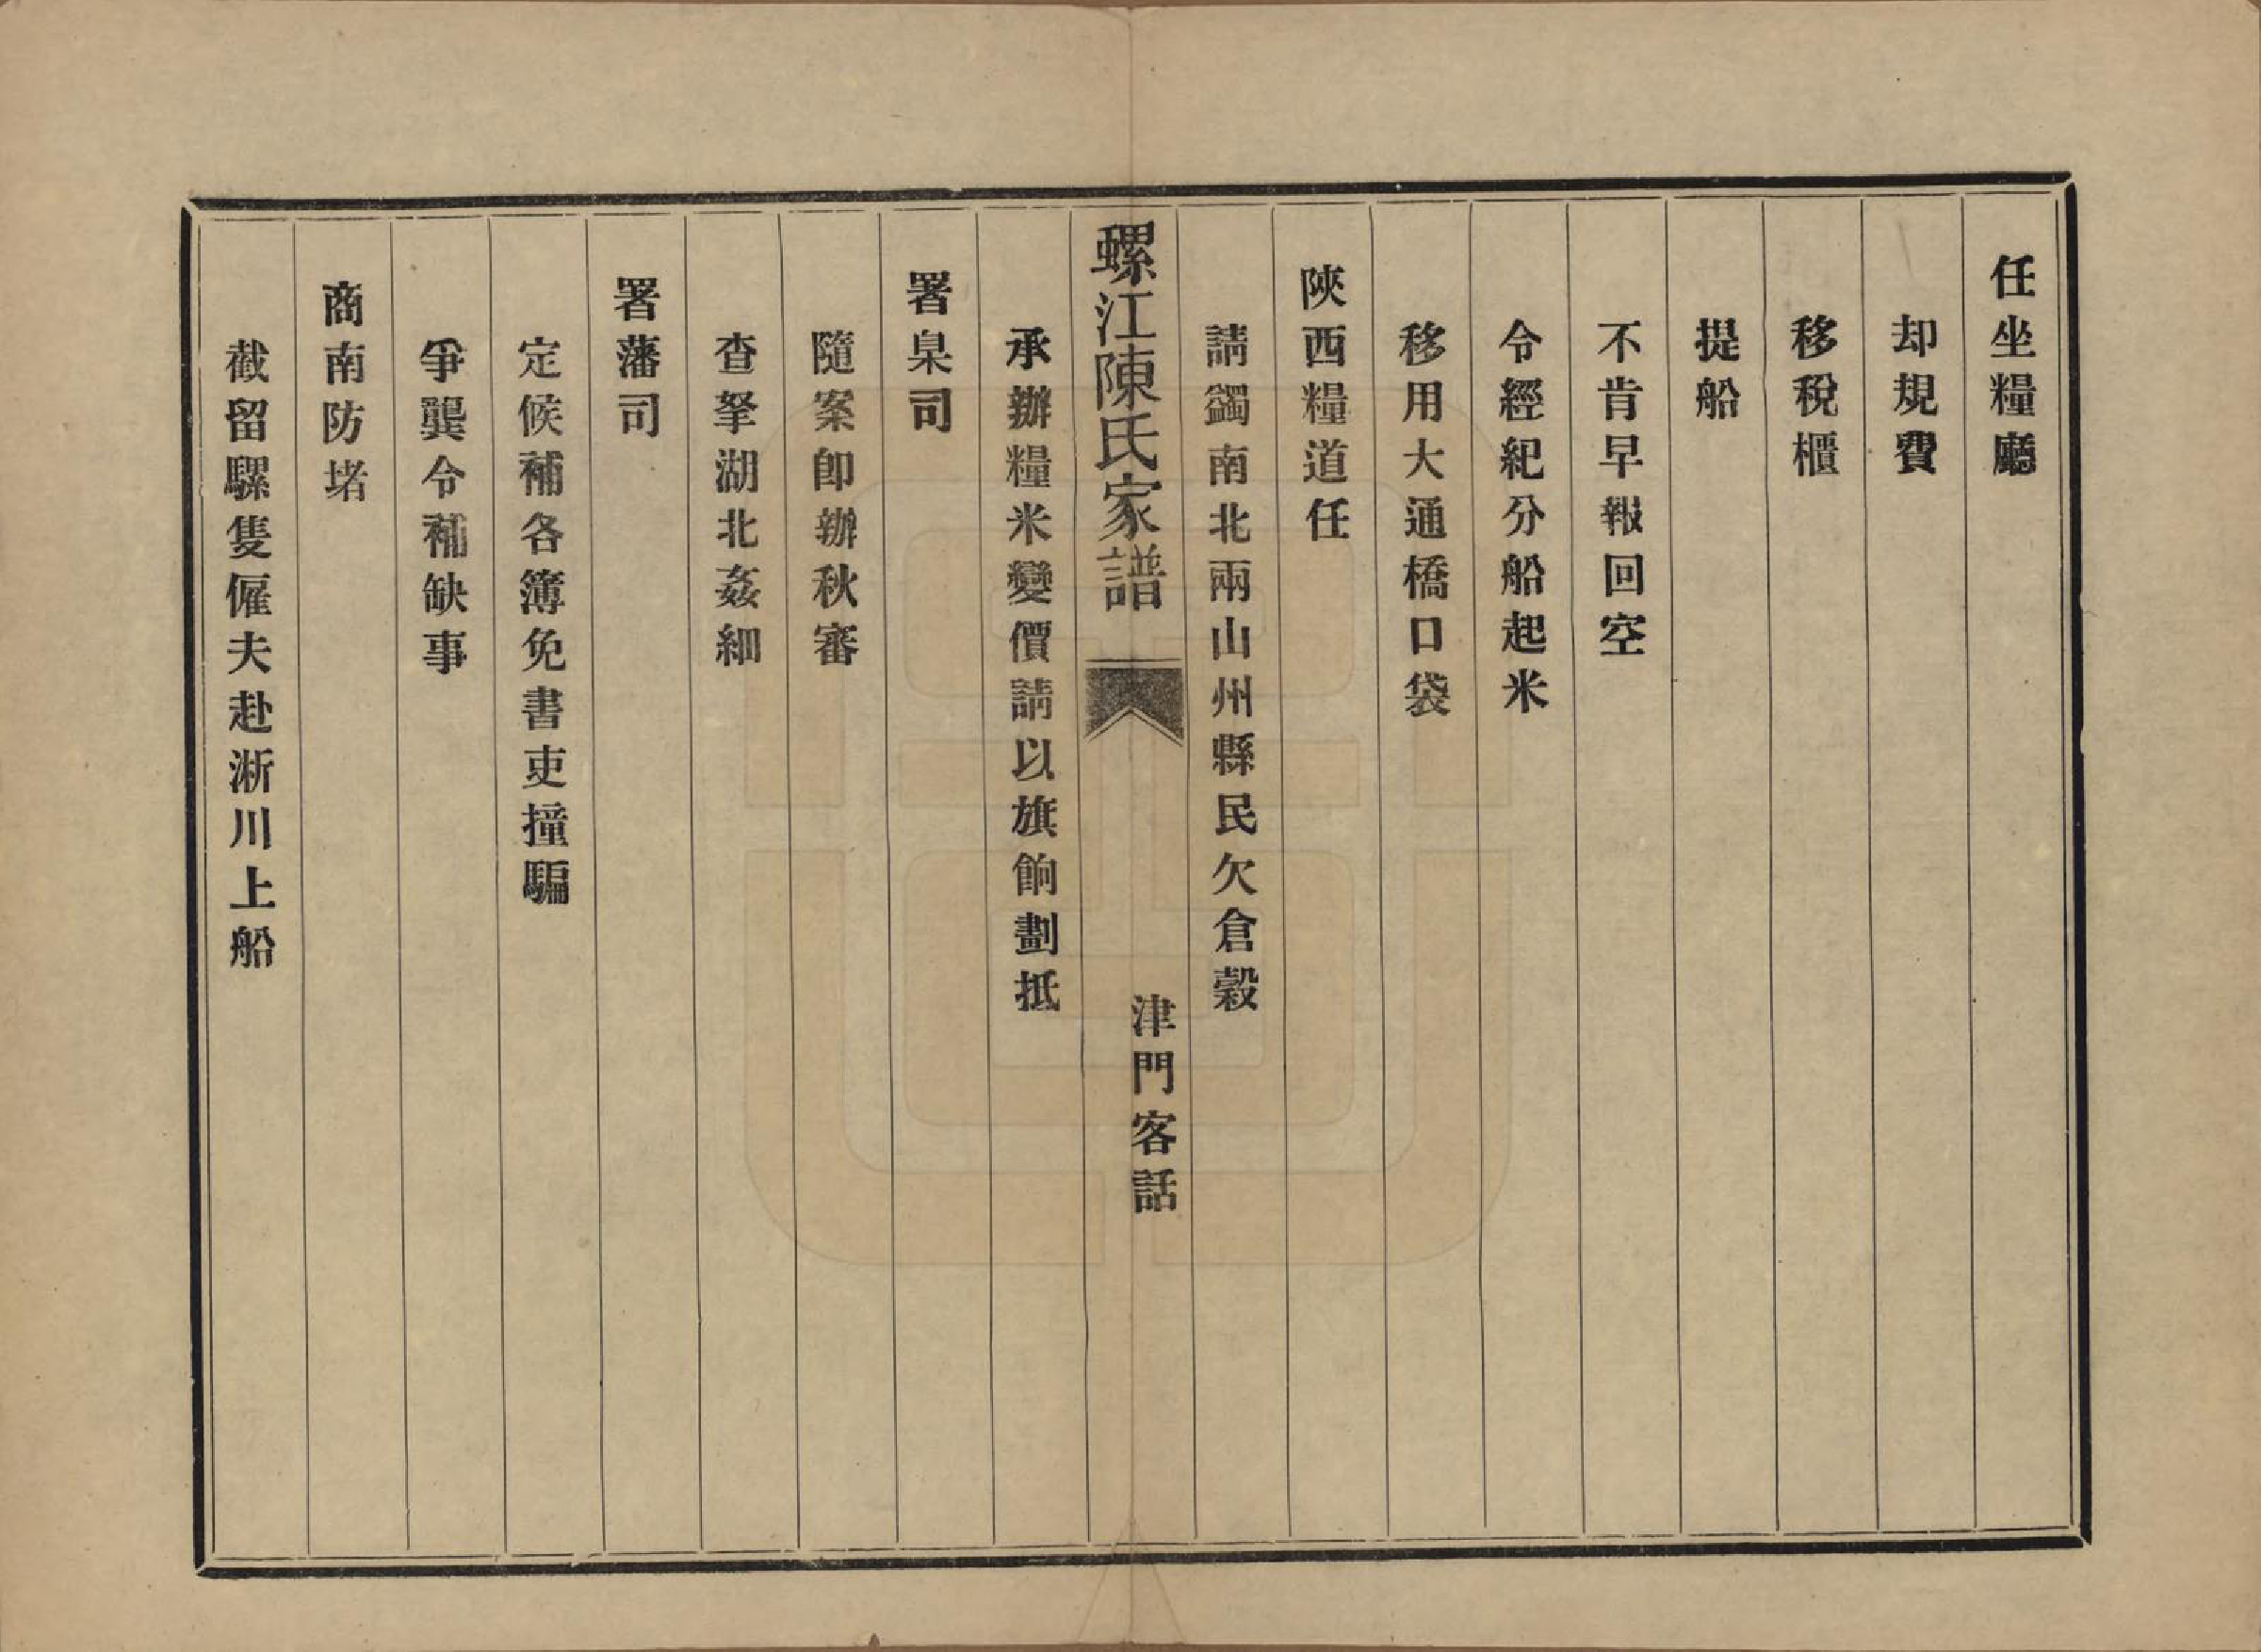 任坐糧廳
却規費
移稅櫃
提船
不肯早報回空
令經紀分船起米
移用大通橋口袋
陝西糧道任
請蠲南北兩山州縣民欠倉穀
螺江陳氏家譜
津門客話
承辦糧米變價請以旗餉劃抵
署臬司
隨案卽辦秋審
查拏湖北姦細
署藩司
定候補各簿免書吏撞騙
爭龔令補缺事
商南防堵
截留騾隻僱夫赴淅川上船